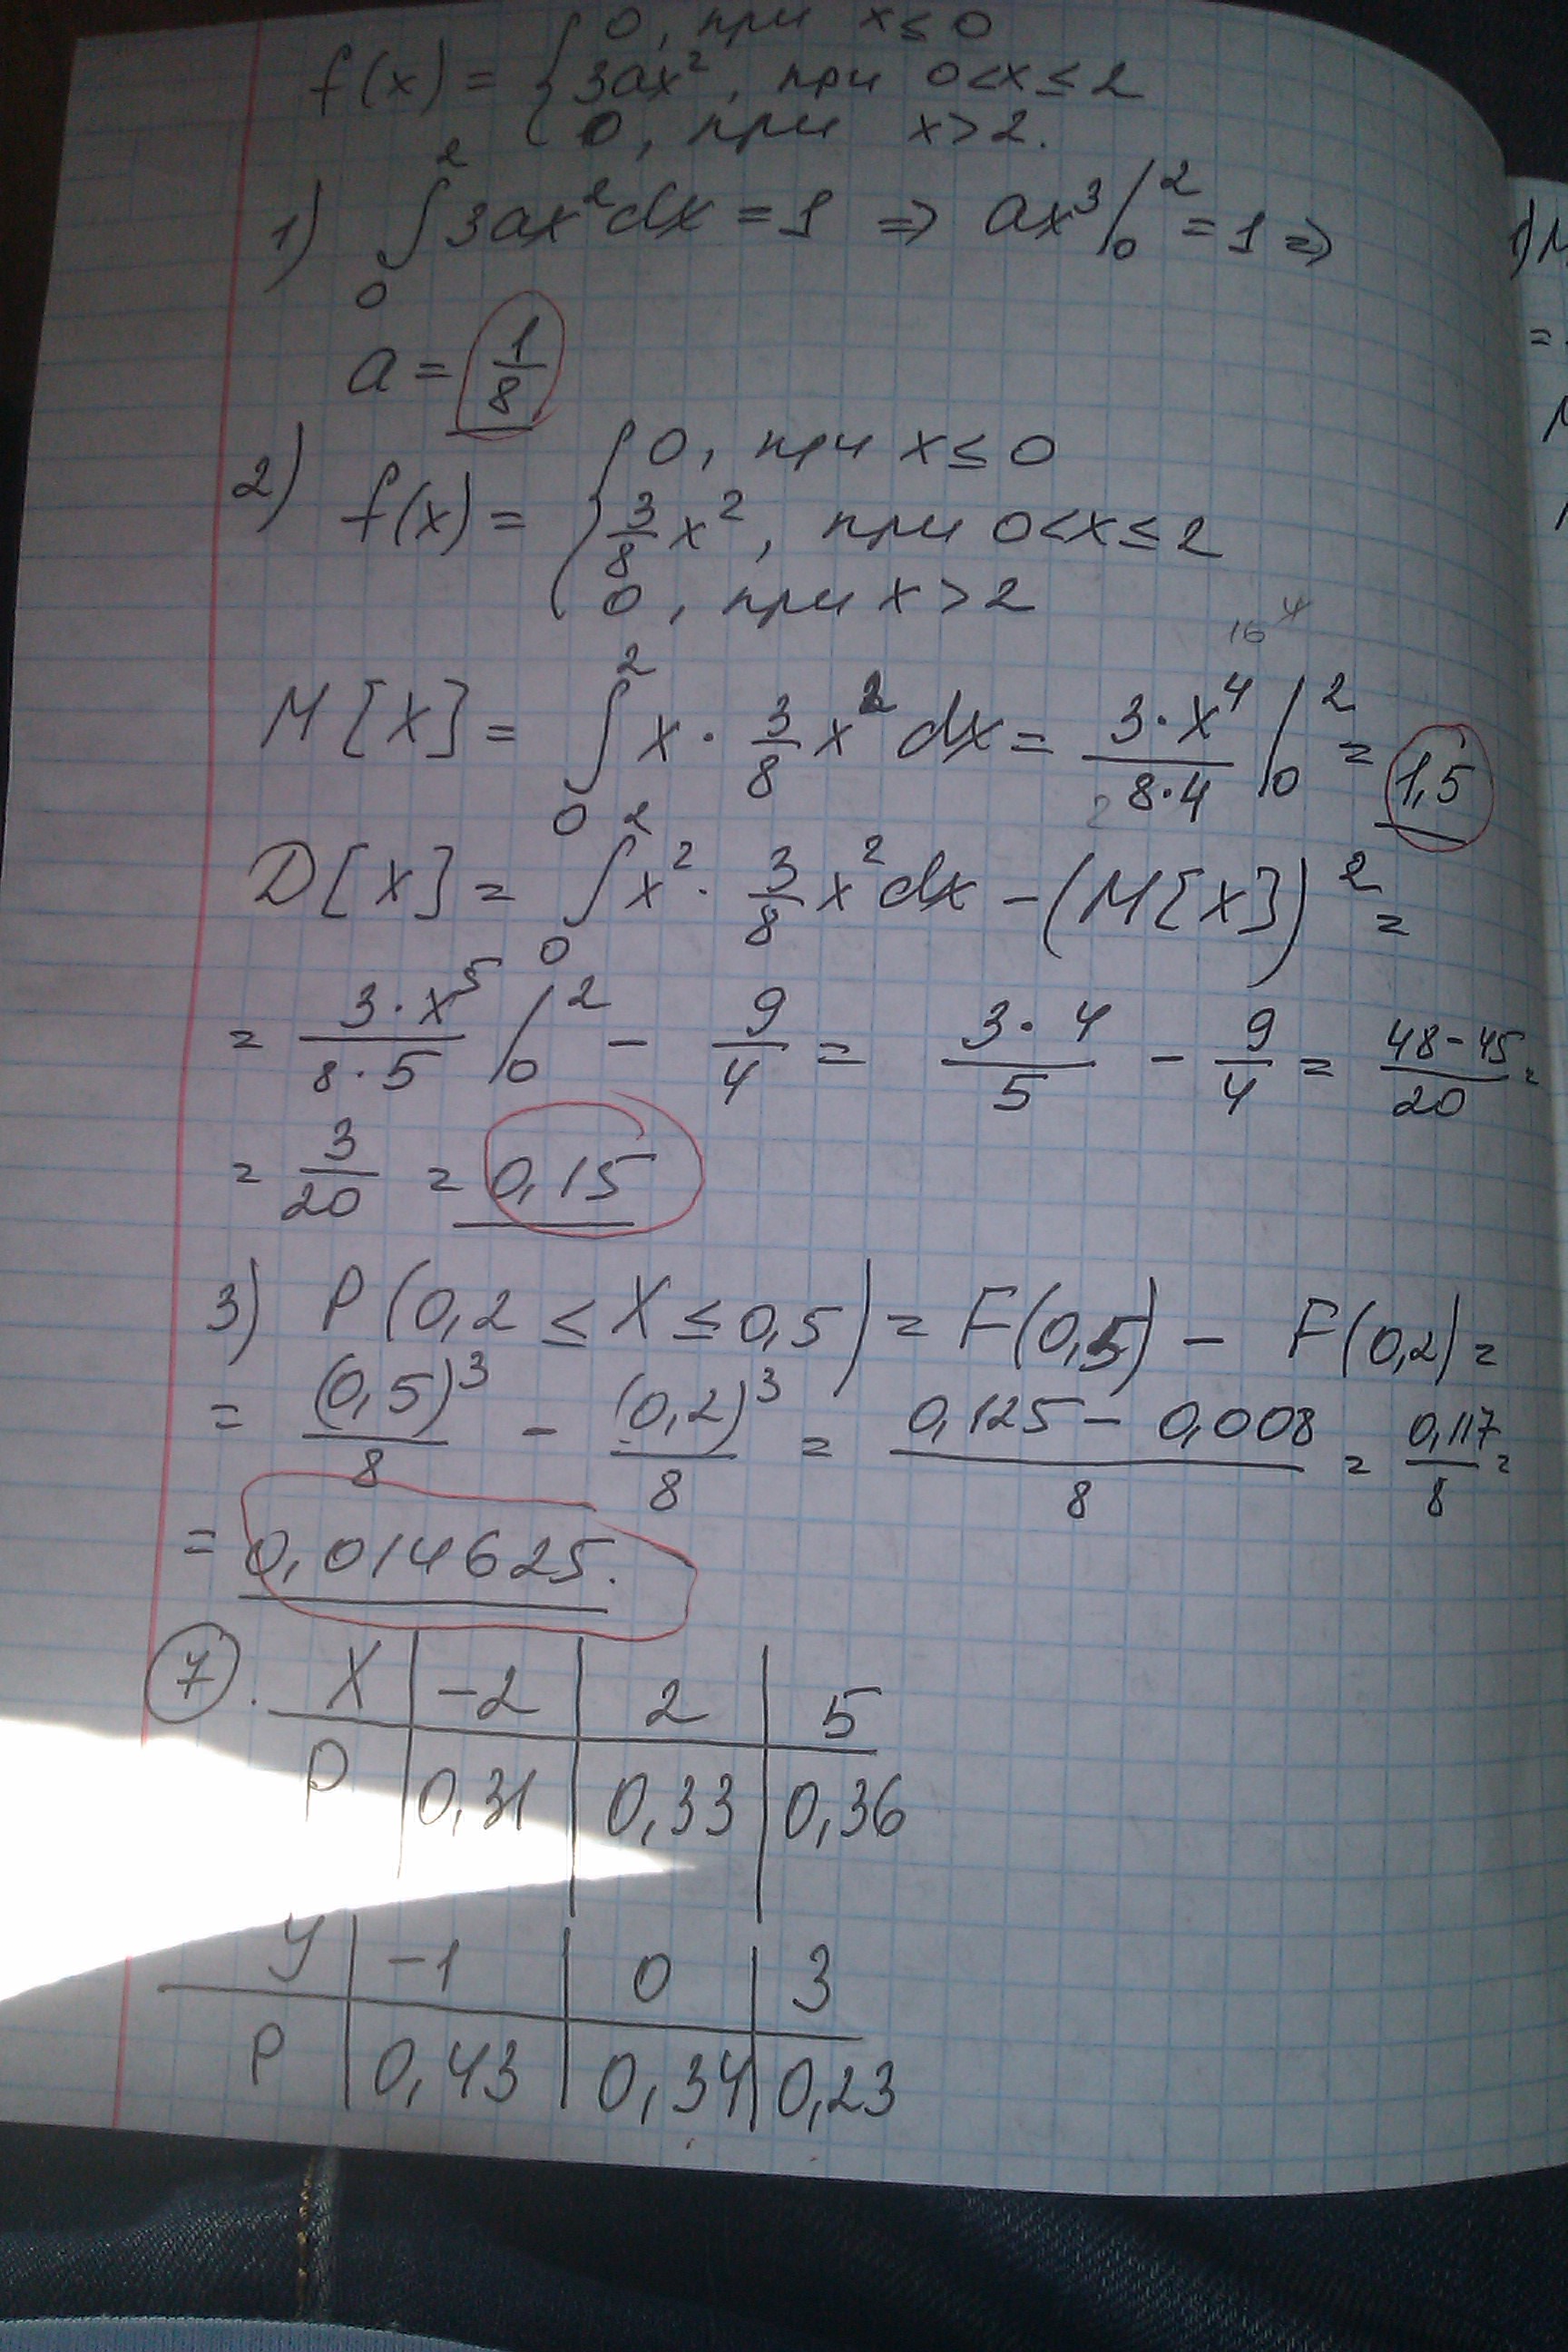 f(x) = { 0, при x ≤ 0
3ax², при 0<x ≤ 2
0, при x > 2.
1) ∫₀² 3ax²dx = 1 ⇒ ax³ |₀² = 1 ⇒
a = 1/8
2) f(x) = { 0, при x ≤ 0
3/8 x², при 0<x ≤ 2
0, при x > 2
16
M[X] = ∫₀² x · 3/8 x² dx = 3·x⁴/8·4 |₀² = 1,5
D[X] = ∫₀² x² · 3/8 x² dx − (M[X])² =
= 3·x⁵/8·5 |₀² − 9/4 = 3·4/5 − 9/4 = 48−45/20 =
= 3/20 = 0,15
3) P(0,2 ≤ X ≤ 0,5) = F(0,5) − F(0,2) =
= (0,5)³/8 − (0,2)³/8 = 0,125 − 0,008/8 = 0,117/8 =
= 0,014625.
7. X | −2 | 2 | 5
P | 0,31 | 0,33 | 0,36
У | −1 | 0 | 3
P | 0,43 | 0,34 | 0,23